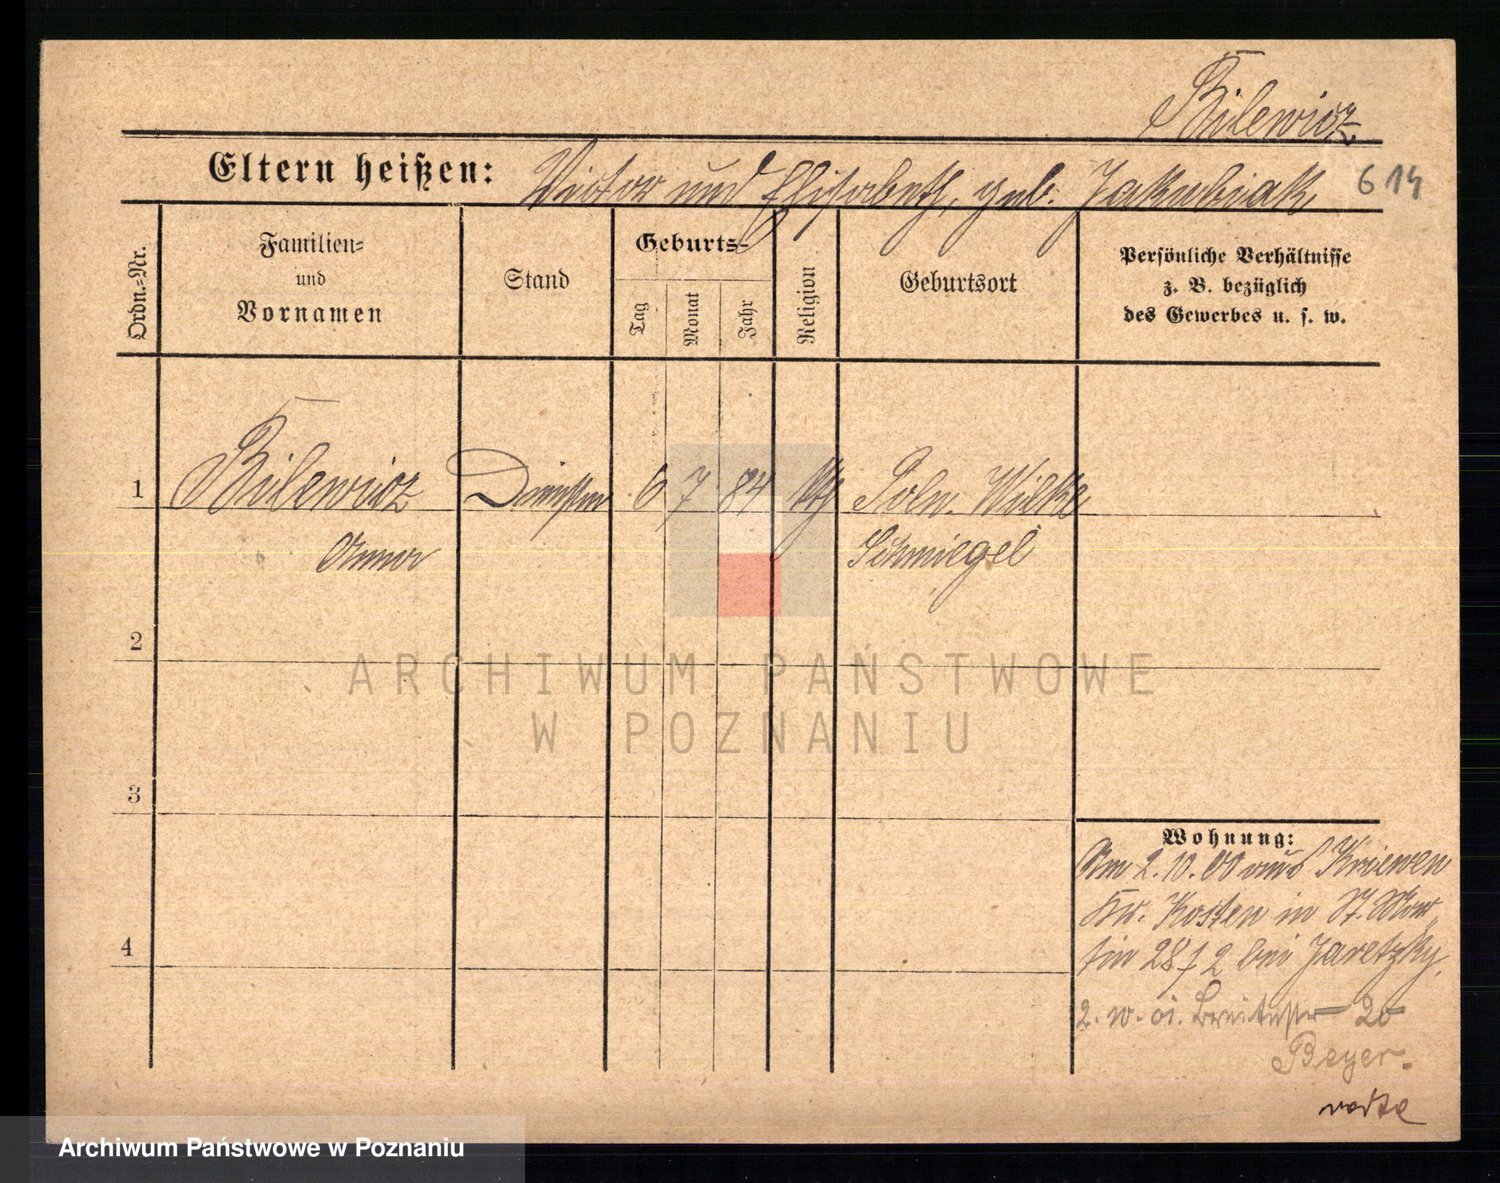 Bilewicz
Eltern heißen: Victor und Elisabeth, geb. Jakubiak
614
Ordn.-Nr.
Familien-
und
Vornamen
Stand
Geburts-
Tag
Monat
Jahr
Religion
Geburtsort
Persönliche Verhältnisse
z. B. bezüglich
des Gewerbes u. s. w.
1 Bilewicz 6 7 84 kth Poln. Wilke
Anna Schmiegel
2
3
4
ARCHIWUM PAŃSTWOWE
W POZNANIU
Wohnung:
Am 2.10.00 aus Kriewen
Kr. Kosten in St. Mar
tin 28 f 2 bei Jaretzky.
2. 10. 01. Breitestr 20
Beyer.
Archiwum Państwowe w Poznaniu